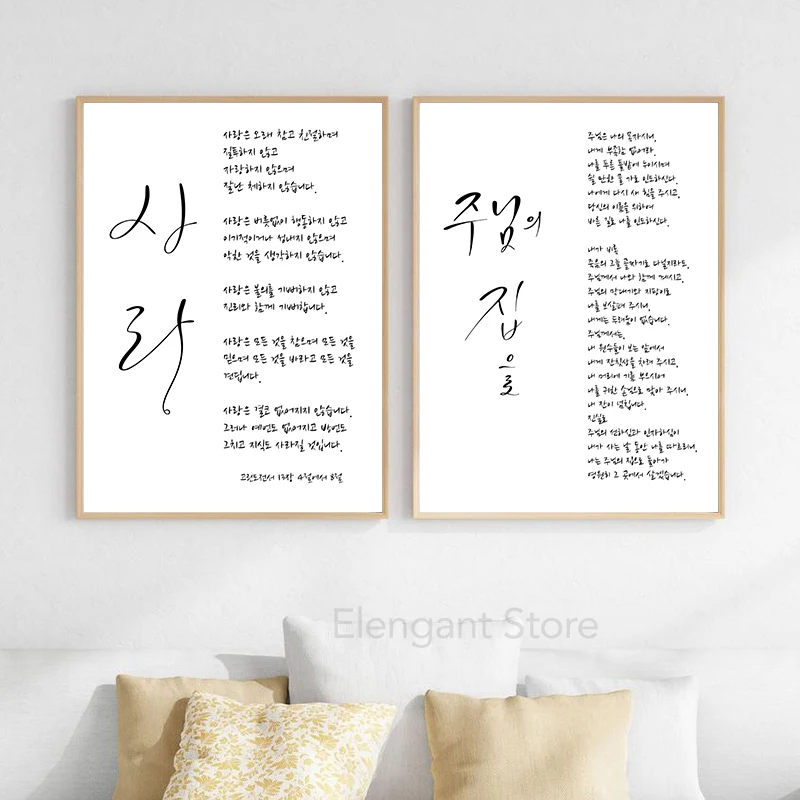 사랑
사랑은 오래 참고 친절하며
질투하지 않고
자랑하지 않으며
잘난 체하지 않습니다.
사랑은 버릇없이 행동하지 않고
이기적이거나 성내지 않으며
악한 것을 생각하지 않습니다.
사랑은 불의를 기뻐하지 않고
진리와 함께 기뻐합니다.
사랑은 모든 것을 참으며 모든 것을
믿으며 모든 것을 바라고 모든 것을
견딥니다.
사랑은 결코 없어지지 않습니다.
그러나 예언도 없어지고 방언도
그치고 지식도 사라질 것입니다.
고린도전서 13장 4절에서 8절
주님의
집으로
주님은 나의 목자시니,
내게 부족함 없어라.
나를 푸른 풀밭에 누이시며
쉴 만한 물 가로 인도하신다.
나에게 다시 새 힘을 주시고,
당신의 이름을 위하여
바른 길로 나를 인도하신다.
내가 비록
죽음의 그늘 골짜기로 다닐지라도,
주님께서 나와 함께 계시고,
주님의 막대기와 지팡이로
나를 보살펴 주시니,
내게는 두려움이 없습니다.
주님께서는,
내 원수들이 보는 앞에서
내게 잔칫상을 차려 주시고,
내 머리에 기름 부으시어
나를 귀한 손님으로 맞아 주시니,
내 잔이 넘칩니다.
진실로
주님의 선하심과 인자하심이
내가 사는 날 동안 나를 따르리니,
나는 주님의 집으로 돌아가
영원히 그 곳에서 살겠습니다.
Elengant Store